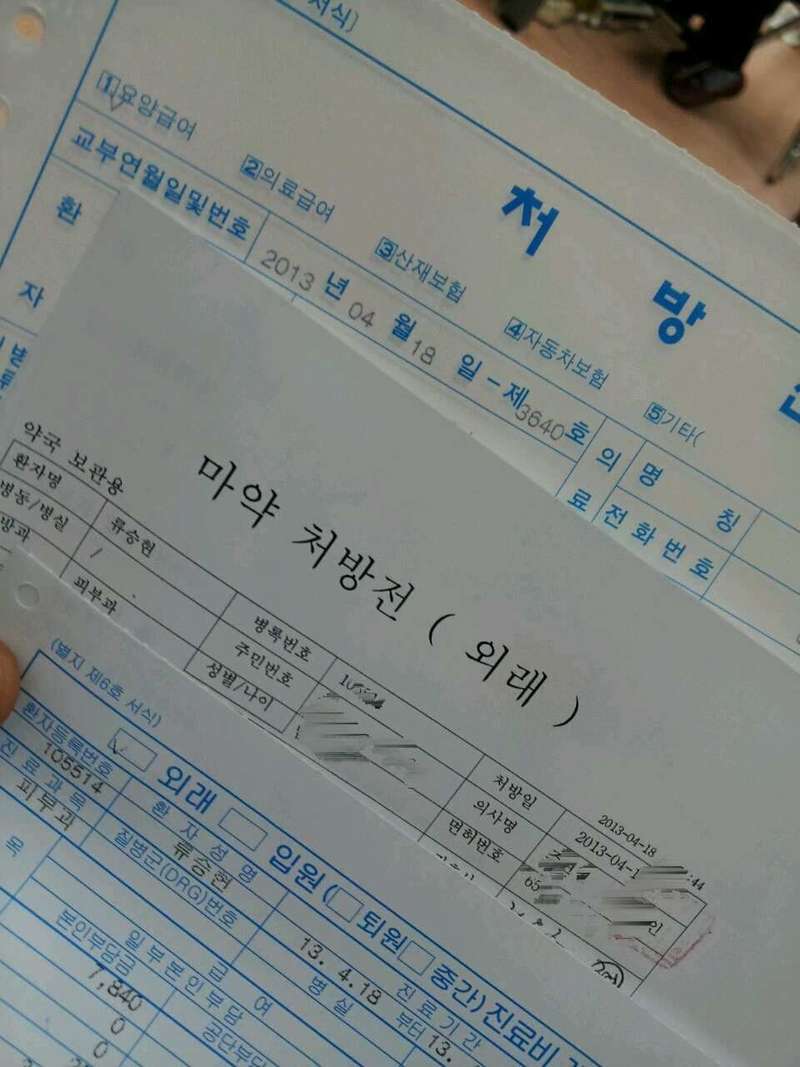 서식]
1 요양급여
2 의료급여
3 산재보험
4 자동차보험
5 기타(
처 방
교부연월일및번호
2013 년 04 월 18 일 - 제 3640 호
환
자
의
료
명 칭
전 화 번 호
약국 보관용
마약 처방전 ( 외래 )
환자명 류승현
병록번호
처방일 2013-04-18
병동/병실 /
주민번호
의사명
피부과
성별/나이
면허번호 65
인
(별지 제6호 서식)
외래 입원( 퇴원 중간) 진료비
환자등록번호
105514
환 자 성 명
류승현
진 료 기 간
13. 4.18 부터 13.
진 료 과 목
피부과
질병군(DRG)번호
병 실
목
급 여
일 부 본 인 부 담
본인부담금
공단부담
7,840
0
0